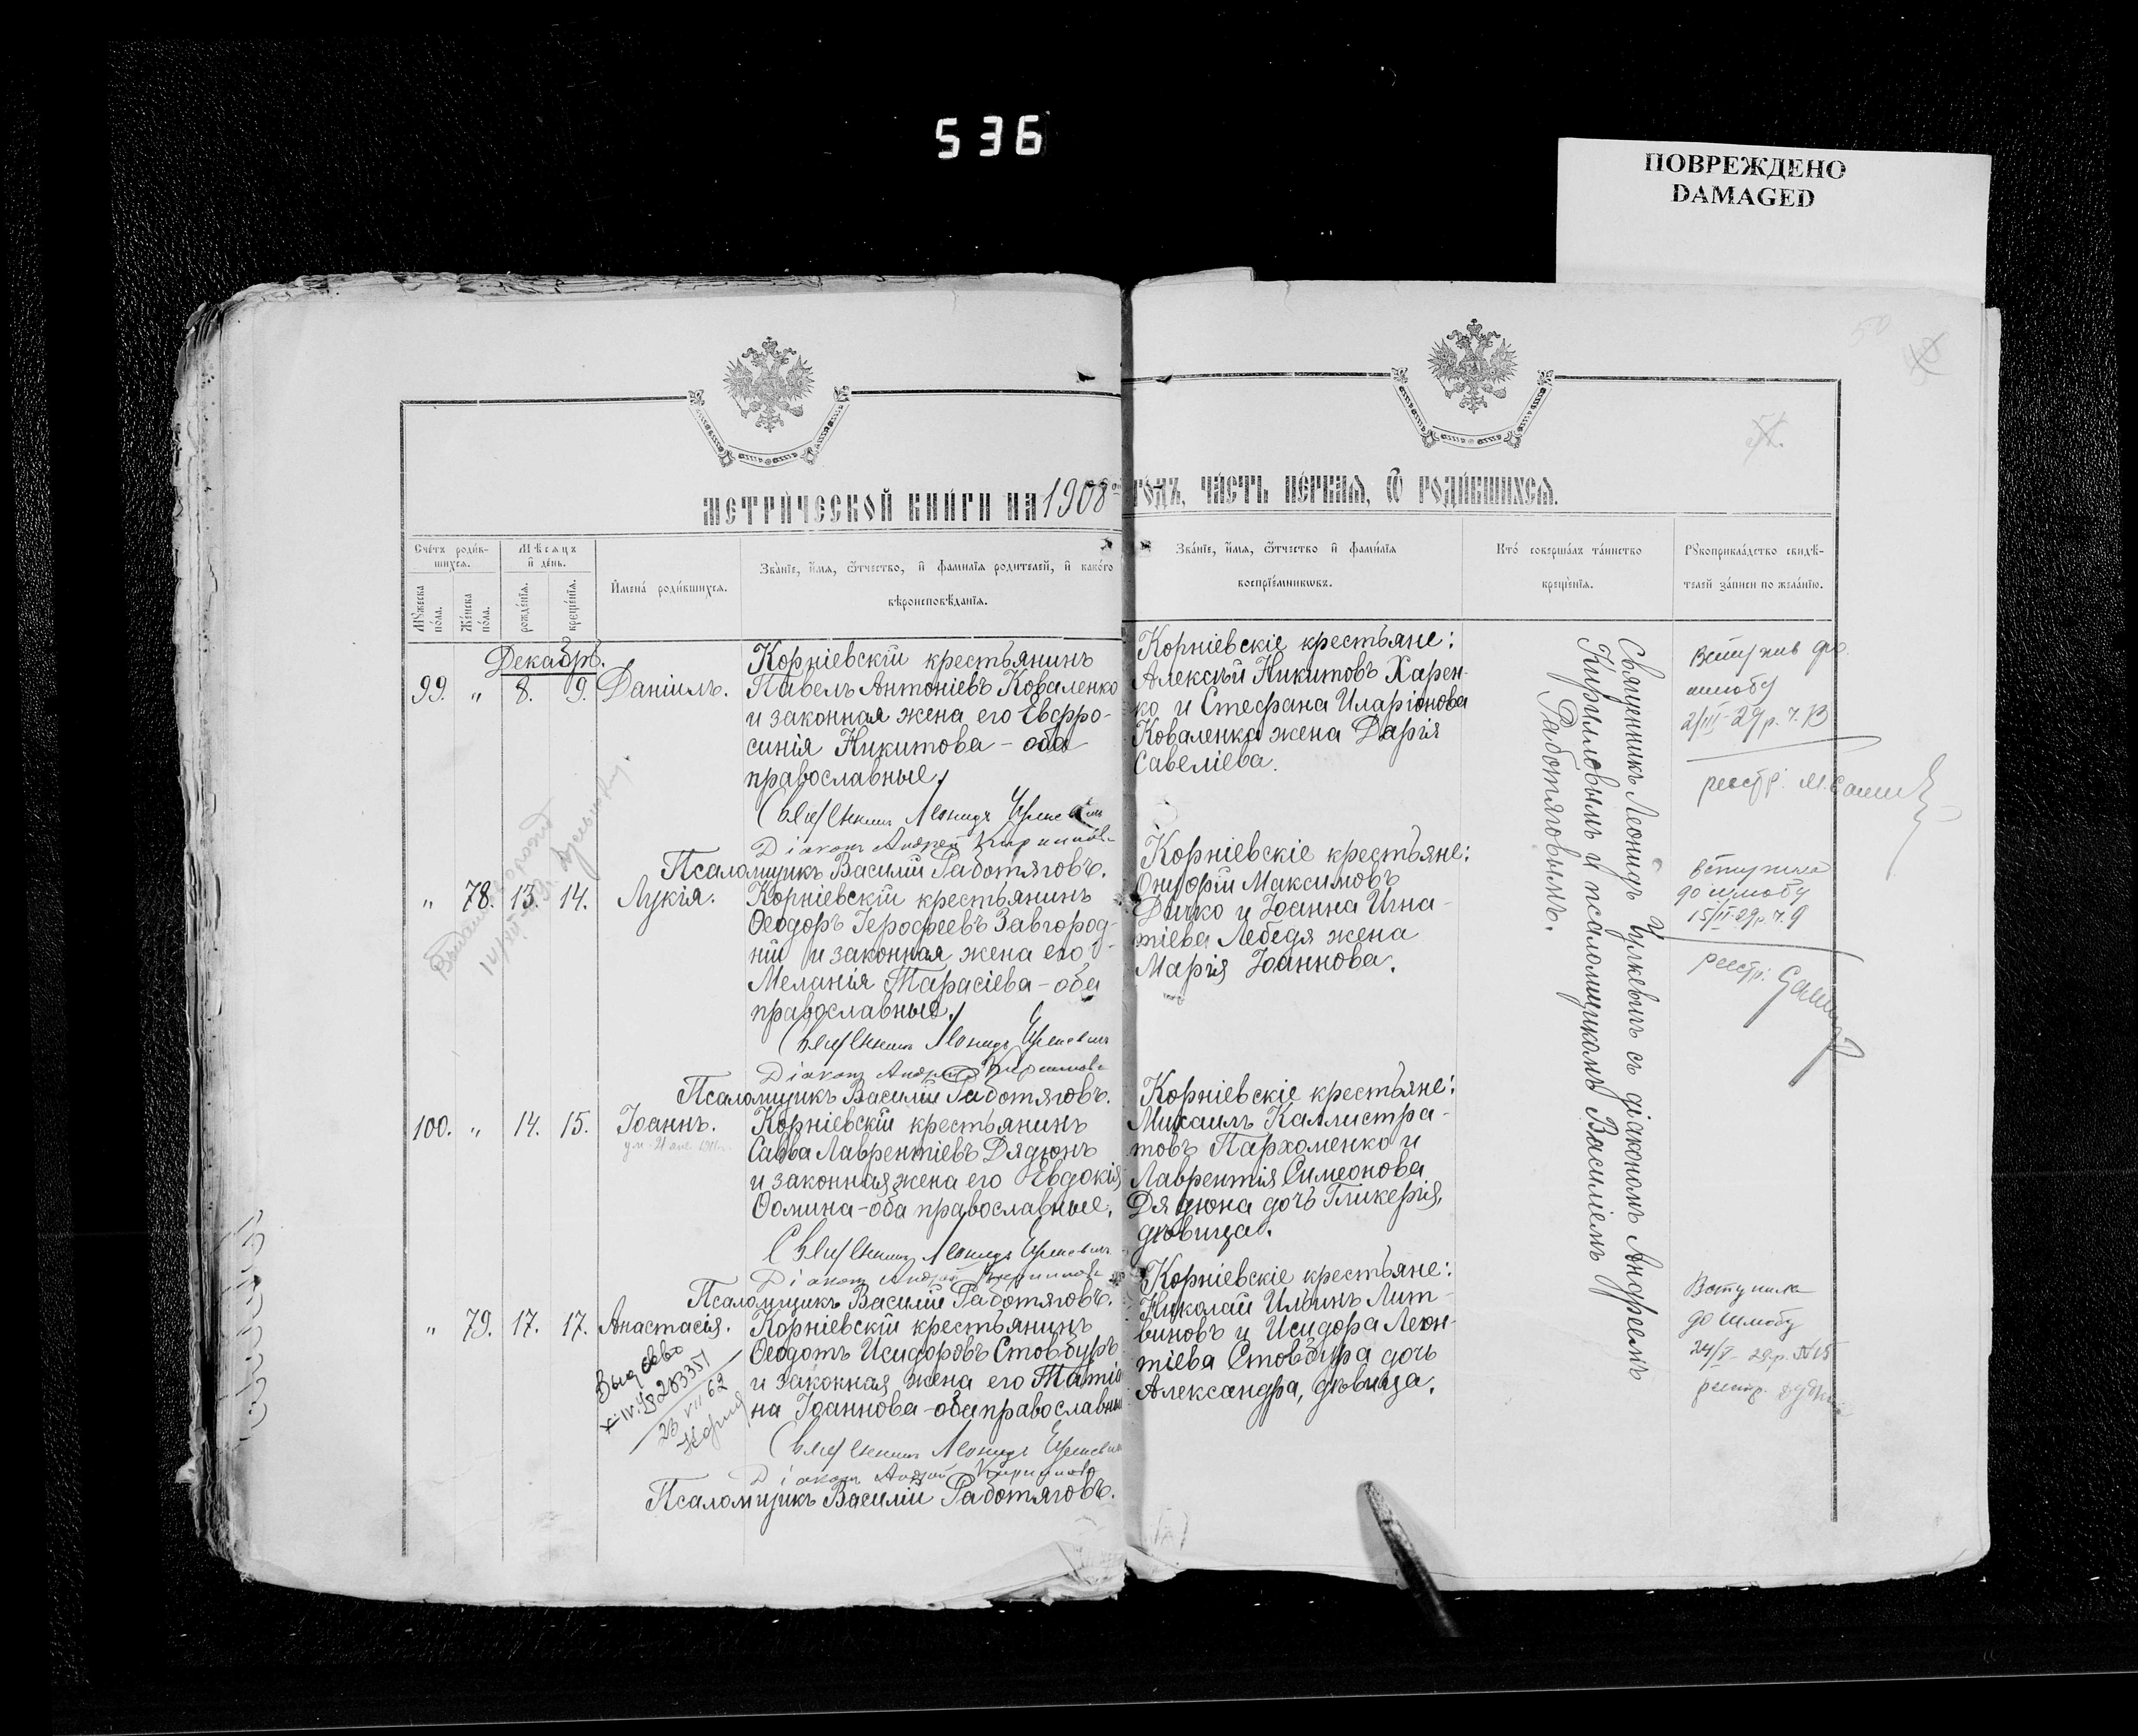 536
ПОВРЕЖДЕНО
DAMAGED
50
МЕТРИ́ЧЕСКОЙ КНИ́ГИ НА 1908 ГО́ДЪ, ЧА́СТЬ ПЕ́РВАЯ, Ѿ РОДИ́ВШИХСЯ.
Сче́тъ роди́в-
шихся.
Му́жеска по́ла.
Же́нска по́ла.
Мѣ́сяцъ
и де́нь.
рожде́нія.
креще́нія.
Имена́ роди́вшихся.
Зва́ніе, и́мя, ѻ́тчество, и фами́лія роди́телей, и како́го
вѣроисповѣ́данія.
Зва́ніе, и́мя, ѻ́тчество и фами́лія
воспріе́мниковъ.
Кто́ соверша́лъ та́инство
креще́нія.
Рукоприкла́дство свидѣ́-
телей за́писи по жела́нію.
Декабрь.
99. " 8. 9. Даніилъ.
Корніевскій крестьянинъ
Павелъ Антоніевъ Коваленко
и законная жена его Евфро-
синія Никитова - оба
православные.
Священникъ Леонидъ
Діаконъ Андрей Кирилловъ
Псаломщикъ Василій Работяговъ.
Корніевскіе крестьяне:
Алексѣй Никитовъ Харен-
ко и Стефана Иларіонова
Коваленка жена Дарія
Савеліева.
до
шлюбу
2/III-29 р. ч. 13
реестр.
" 78. 13. 14. Лукія.
Корніевскій крестьянинъ
Ѳеодоръ Іерофеевъ Завгород-
ній и законная жена его
Меланія Тарасіева - оба
православные.
Священникъ Леонидъ
Діаконъ Андрей Кирилловъ
Псаломщикъ Василій Работяговъ.
Корніевскіе крестьяне:
Онуфрій Максимовъ
Дичко и Іоанна Игна-
тіева Лебедя жена
Марія Іоаннова.
вступила
до шлюбу
15/II-29 р. ч. 9
реестр.
100. " 14. 15. Іоаннъ.
Корніевскій крестьянинъ
Савва Лаврентіевъ Дядюнъ
и законная жена его Евдокія
Ѳомина - оба православные.
Священникъ Леонидъ
Діаконъ Андрей Кирилловъ
Псаломщикъ Василій Работяговъ.
Корніевскіе крестьяне:
Михаилъ Каллистра-
товъ Пархоменко и
Лаврентія Симеонова
Дядюна дочь Гликерія,
дѣвица.
" 79. 17. 17. Анастасія.
Корніевскій крестьянинъ
Ѳеодотъ Исидоровъ Стовбуръ
и законная жена его Татіа
на Іоаннова - оба православны
Священникъ Леонидъ
Діаконъ Андрей Кирилловъ
Псаломщикъ Василій Работяговъ.
23 VII 62
Корніевскіе крестьяне:
Николай Ильинъ Лит-
виновъ и Исидора Леон-
тіева Стовбура дочь
Александра, дѣвица.
Вступила
до шлюбу
реестр.
Священникъ Леонидъ съ діакономъ Андреемъ
Кирилловымъ и псаломщикомъ Василіемъ
Работяговымъ.